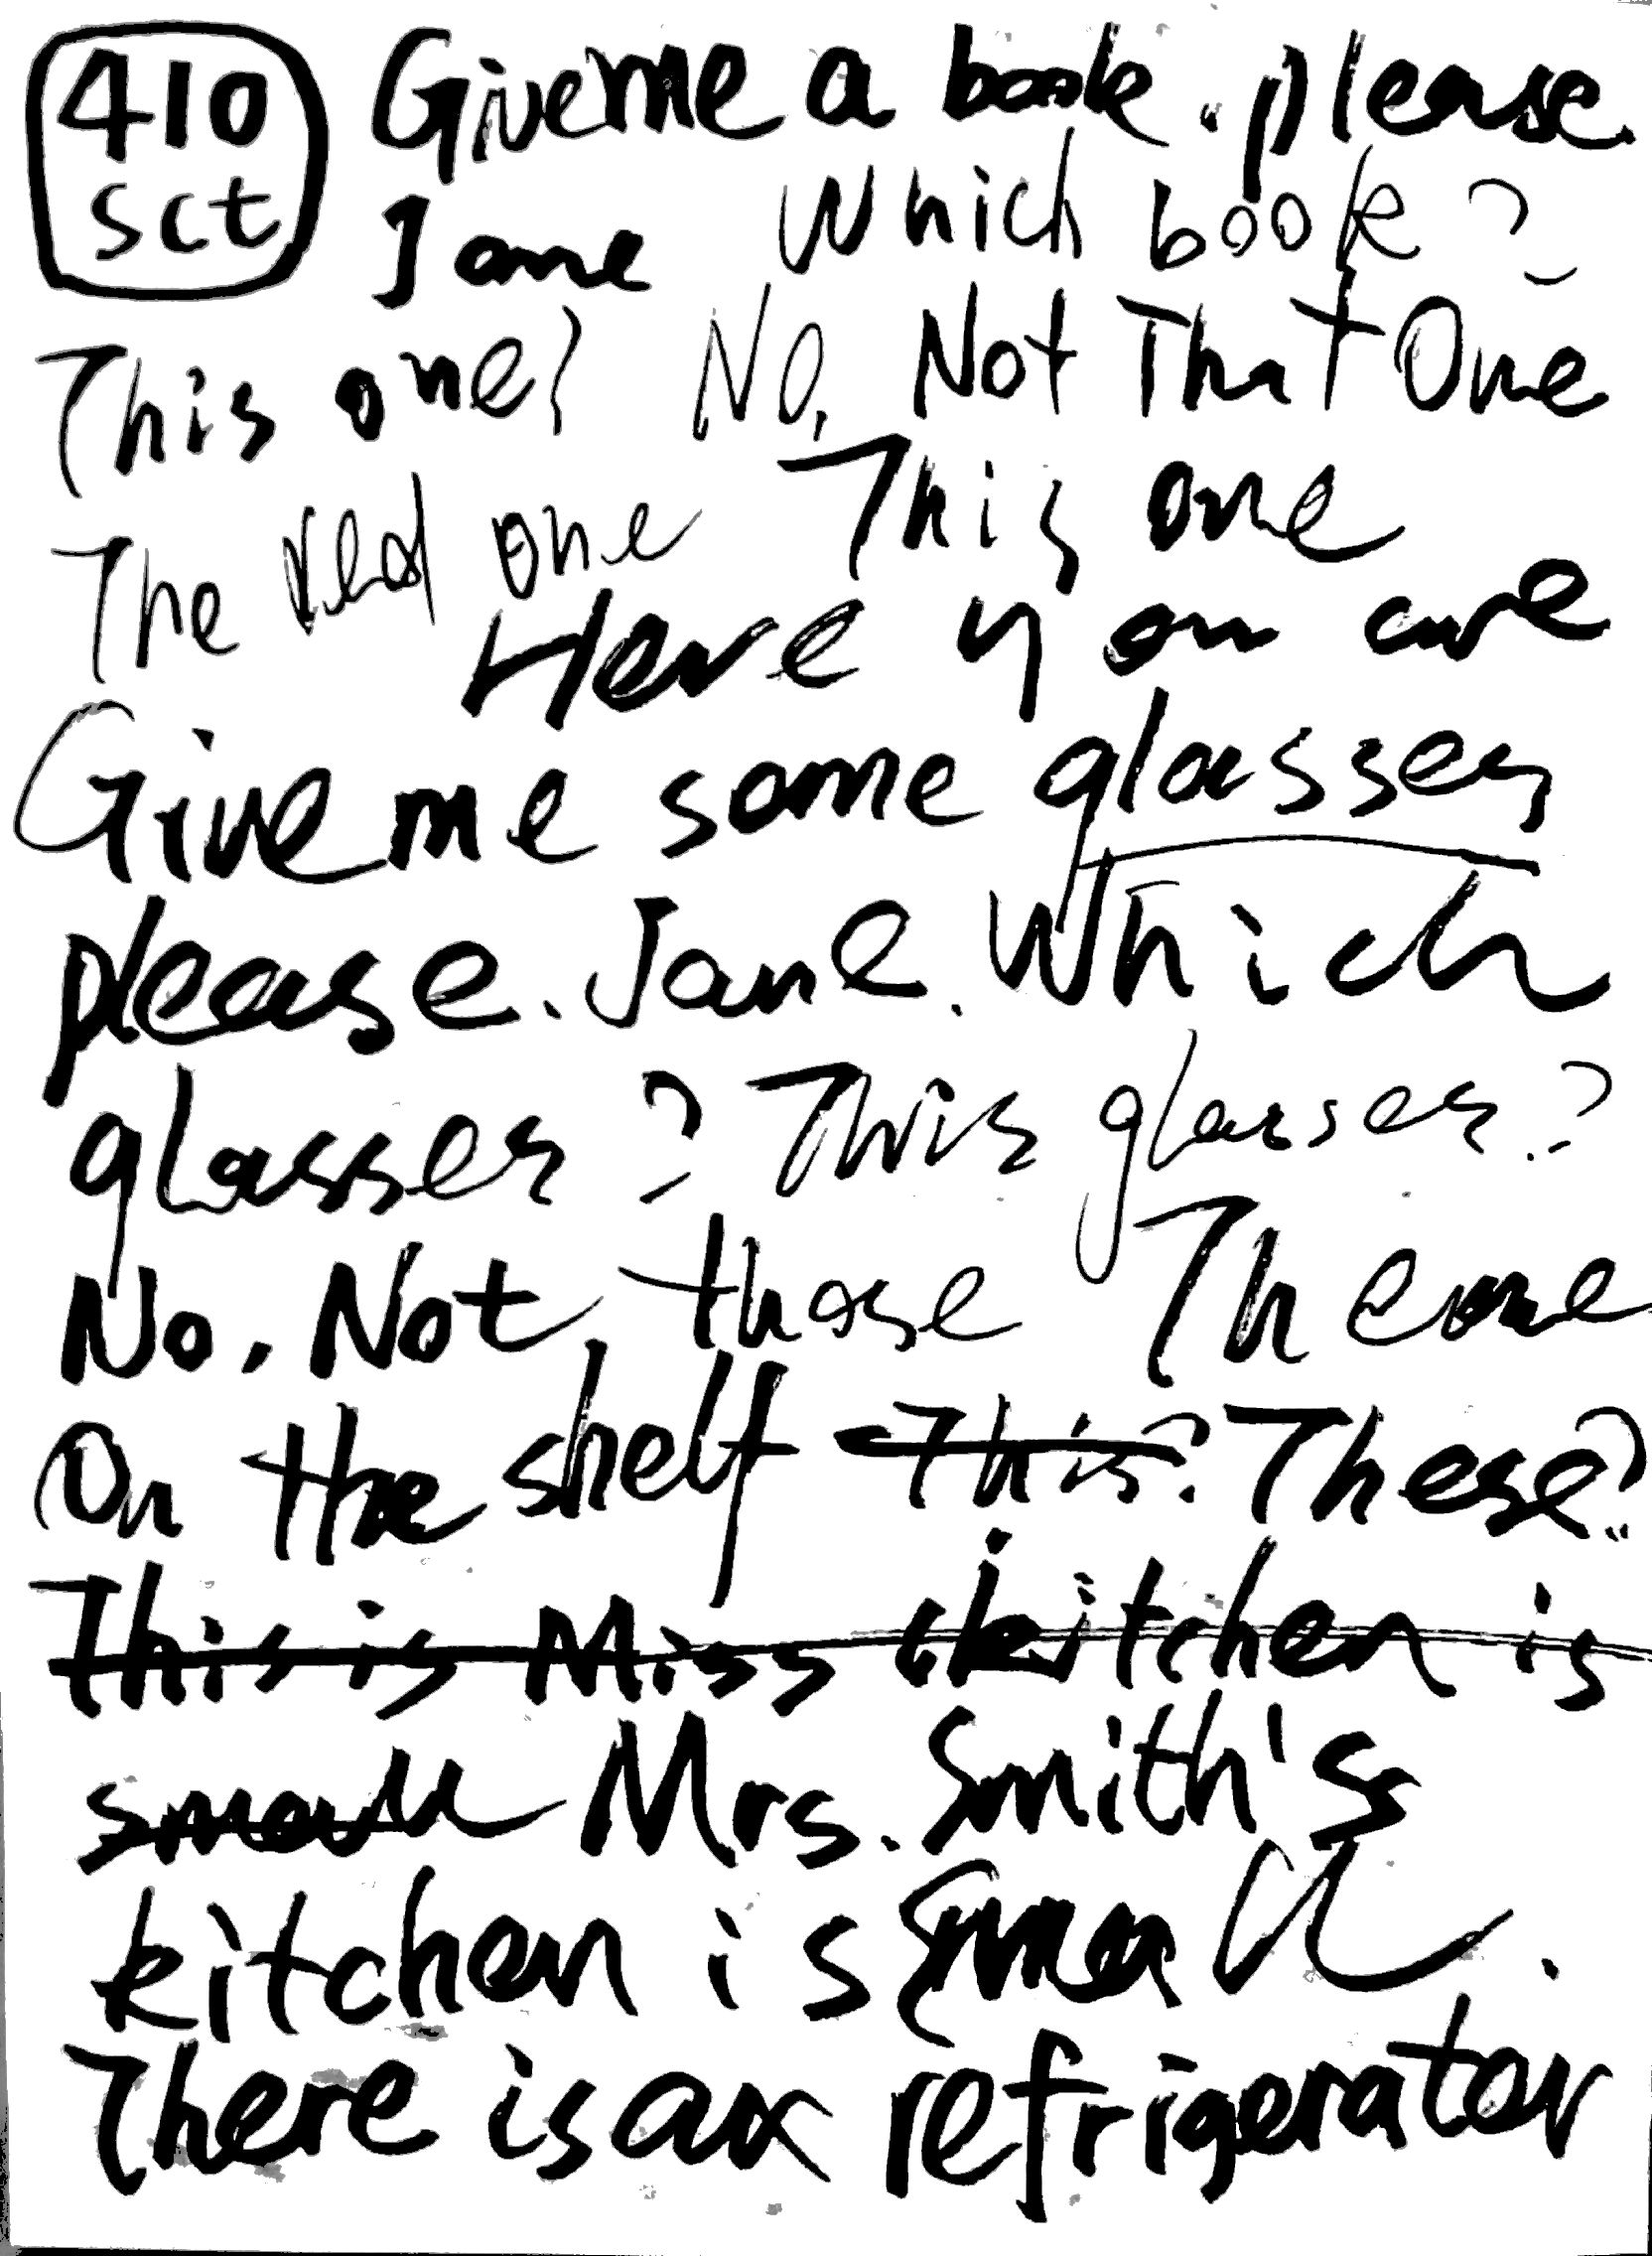 410 Give me a book. please
sct Jane Which book?
This one? No, Not That One
The red one This one
Here you are
Give me some glasses
please. Jane. Which
glasses? This glasses?
No. Not those The one
On the shelf This? These?
This is Miss kitchen is
small Mrs. Smith's
kitchen is small.
There is a refrigerator